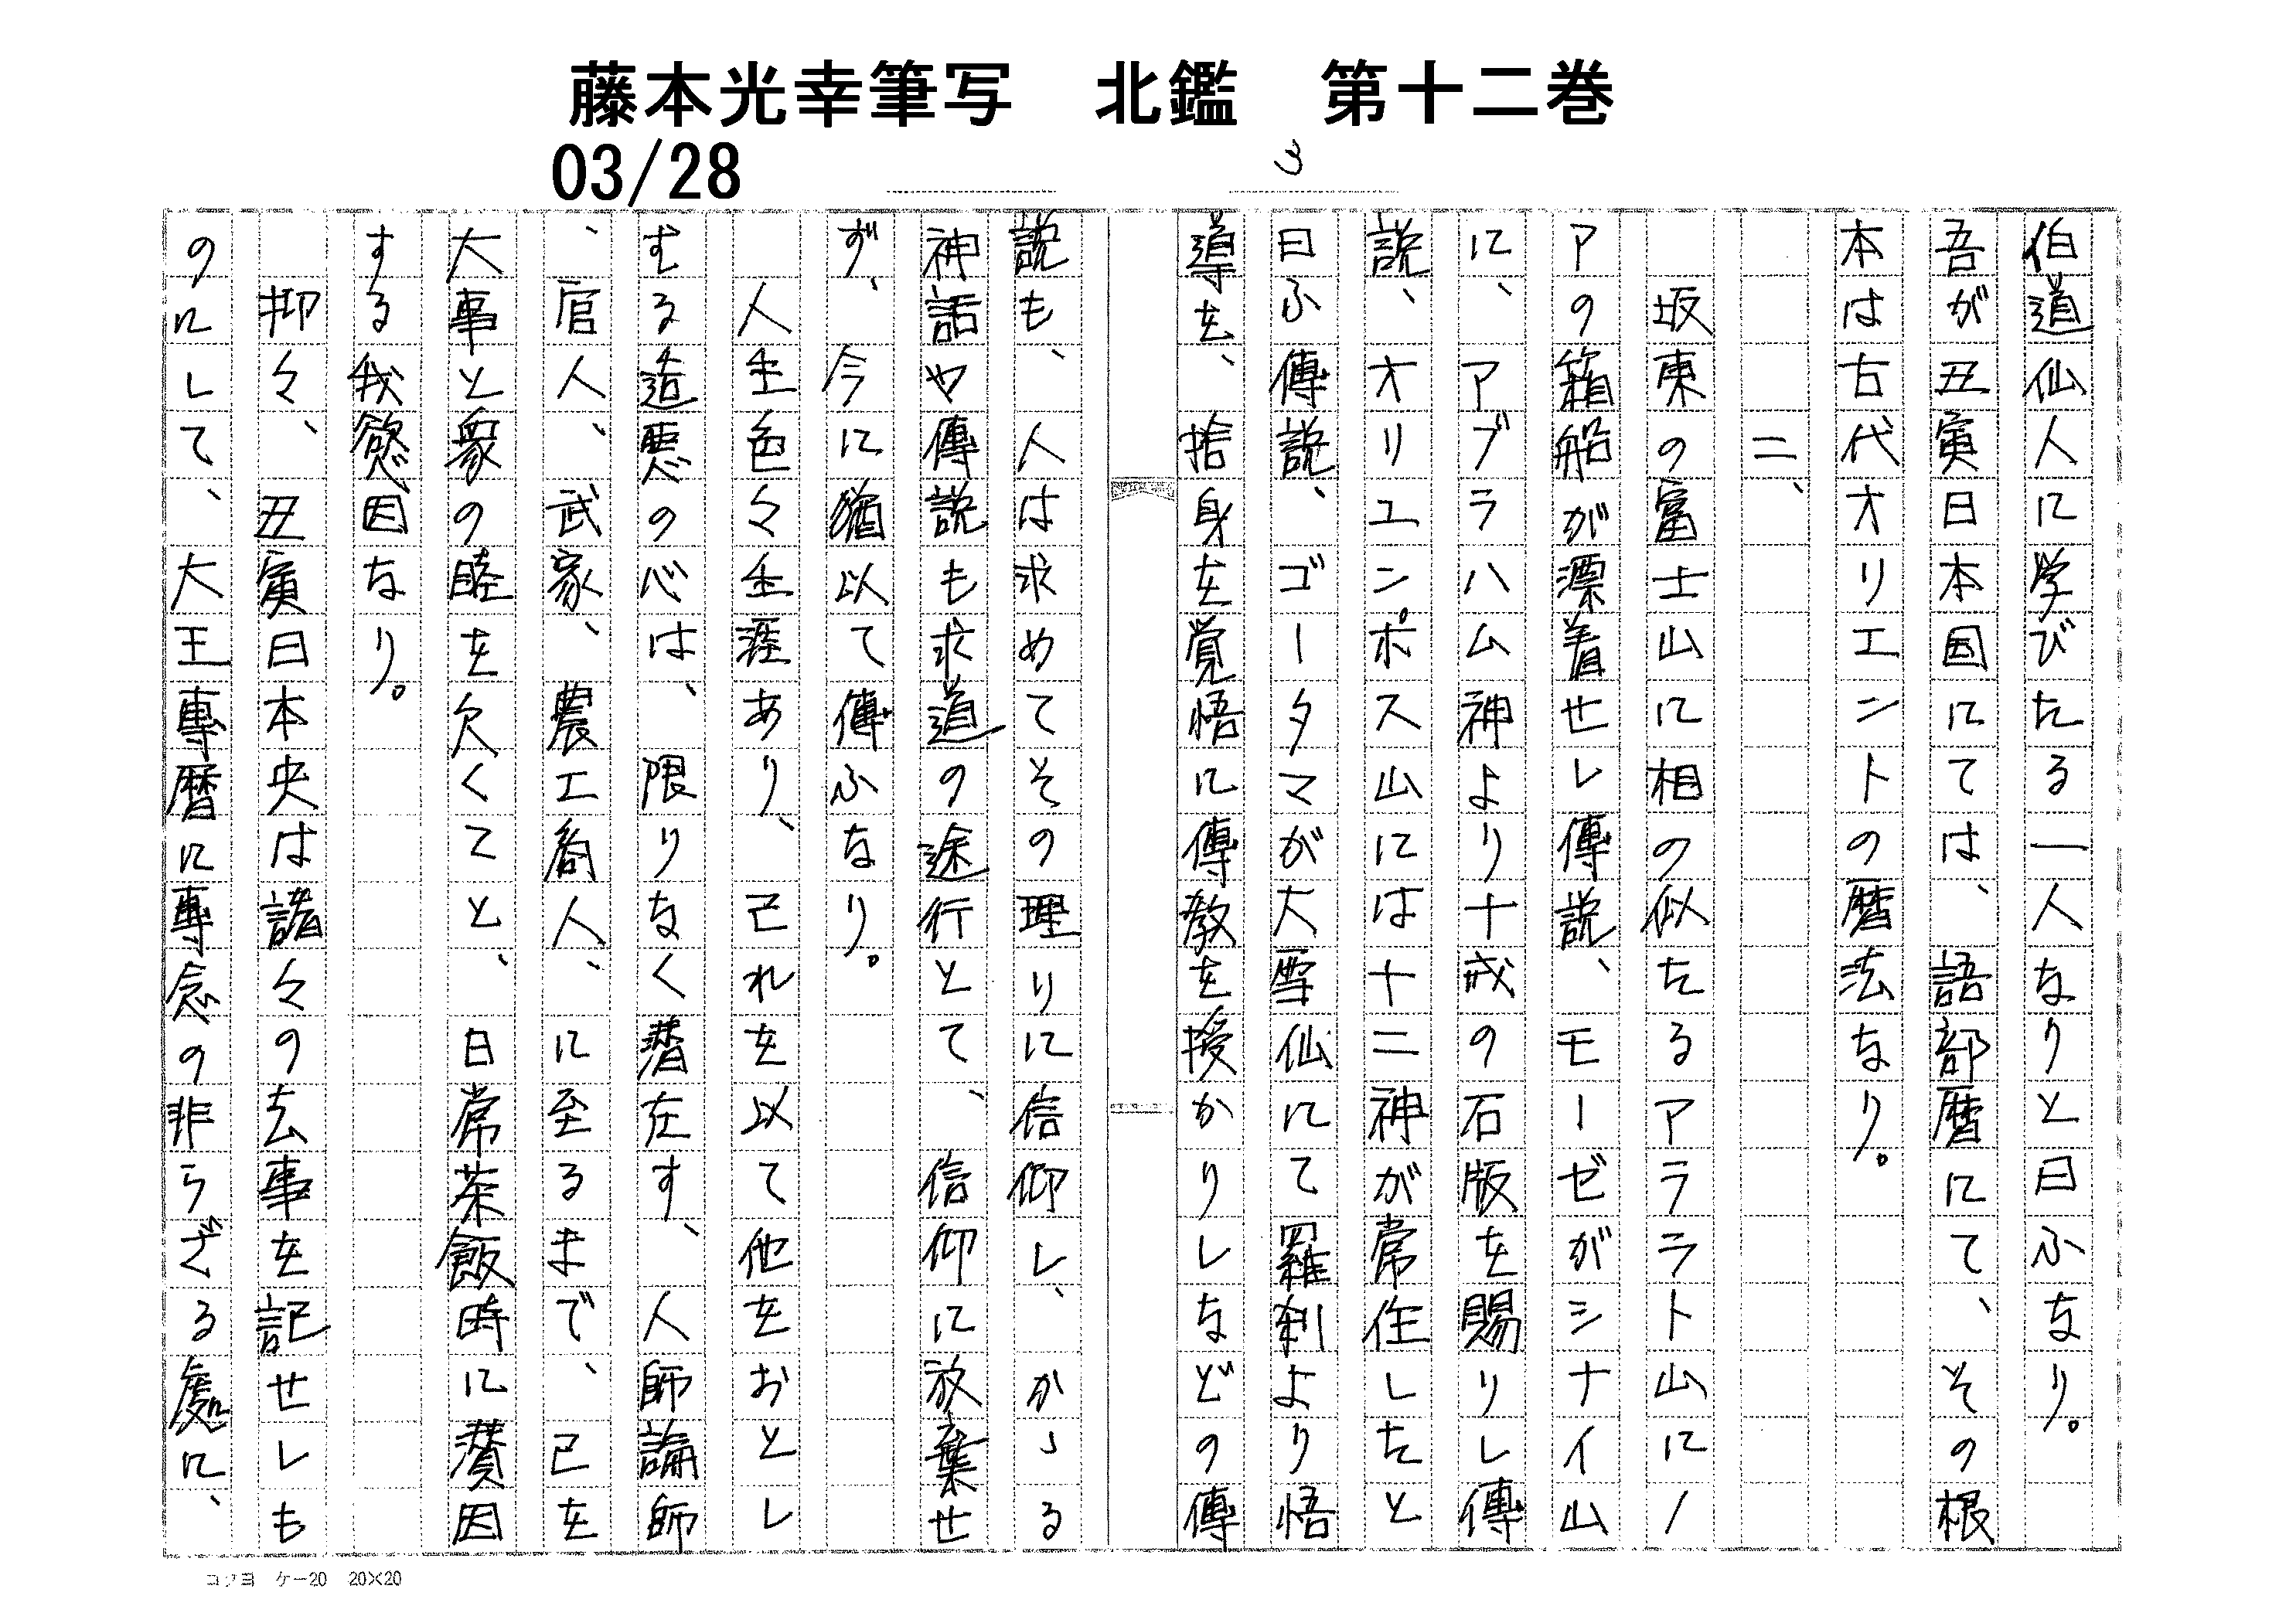 藤本光幸筆写　北鑑　第十二巻
03/28
3
伯道仙人に学びたる一人なりと曰ふなり。
吾が丑寅日本国にては、語部暦にて、その根
本は古代オリエントの暦法なり。
二、
坂東の富士山に相の似たるアララト山にノ
アの箱船が漂着せし傳説、モーゼがシナイ山
に、アブラハム神より十戒の石版を賜りし傳
説、オリユンポス山には十二神が常住したと
曰ふ傳説、ゴータマが大雪仙にて羅刹より悟
導を、捨身を覚悟に傳教を授かりしなどの傳
説も、人は求めてその理りに信仰し、かゝる
神話や傳説も求道の途行とて、信仰に放棄せ
ず、今に猶以て傳ふなり。
人生色々生涯あり、己れを以て他をおとし
むる造悪の心は、限りなく潜在す、人師論師
、官人、武家、農工商人、に至るまで、己を
大事と衆の睦を欠くてと、日常茶飯時に賛因
する我慾因なり。
抑々、丑寅日本央は諸々の去事を記せしも
のにして、大王專暦に専念の非らざる處に、
コクヨ　ケー20　20×20